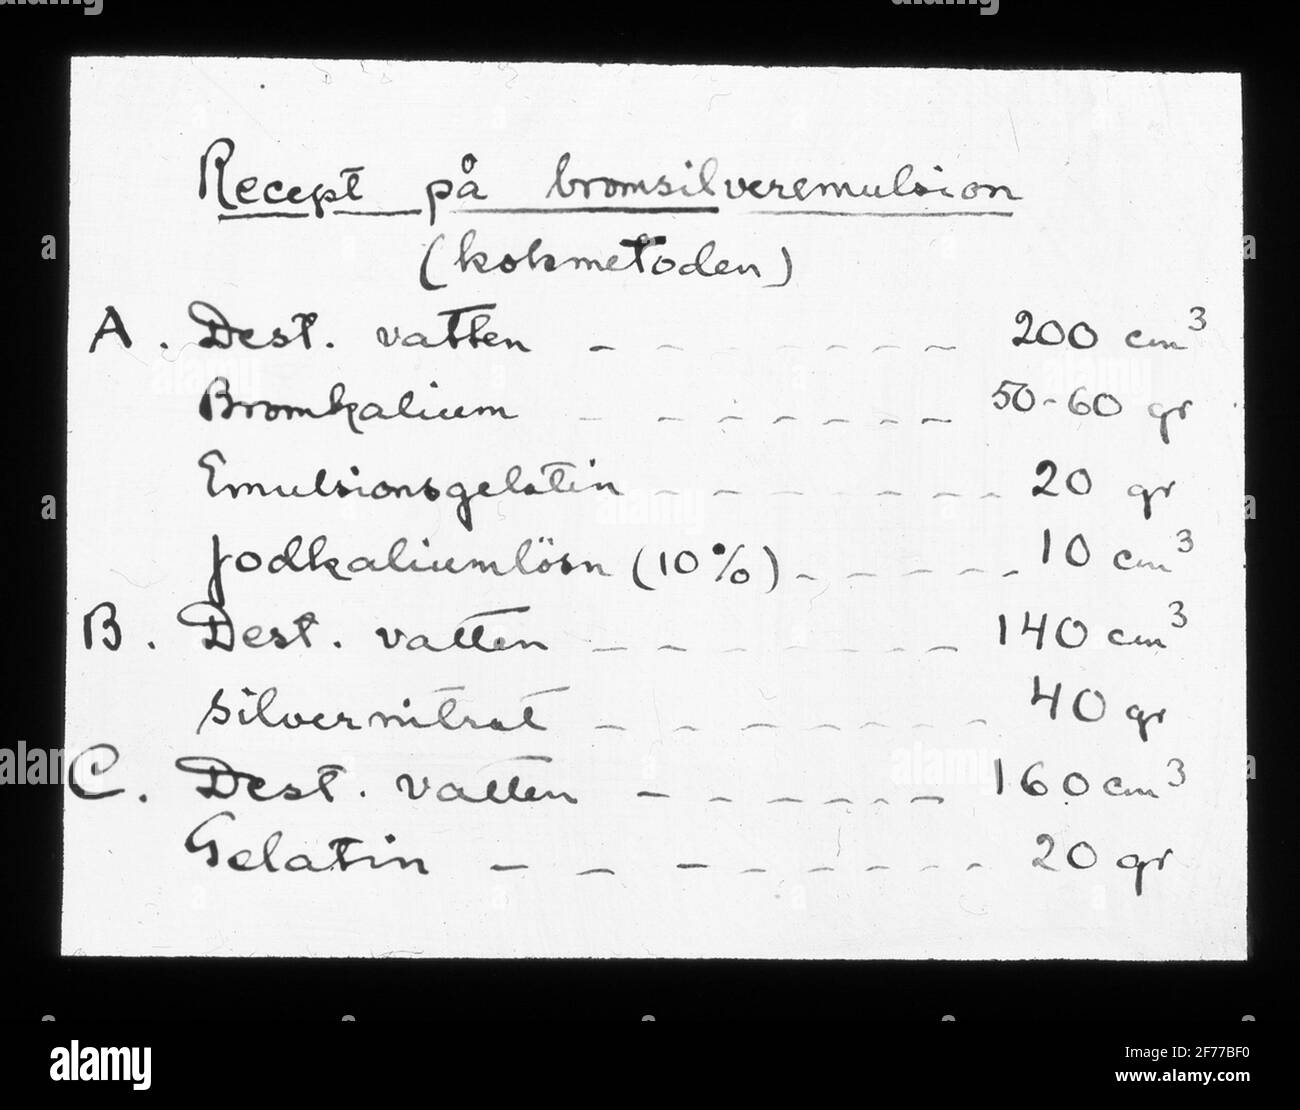 Recept på bromsilveremulsion
(kokmetoden)
A. Dest. vatten — — — — — — — 200 cm³
Bromkalium — — — — — — — 50-60 gr
Emulsionsgelatin — — — — — — — 20 gr
Jodkaliumlösn (10%) — — — — — 10 cm³
B. Dest. vatten — — — — — — — 140 cm³
Silvernitrat — — — — — — — 40 gr
C. Dest. vatten — — — — — — 160 cm³
Gelatin — — — — — — — 20 gr
alamy
Image ID: 2F77BF0
www.alamy.com